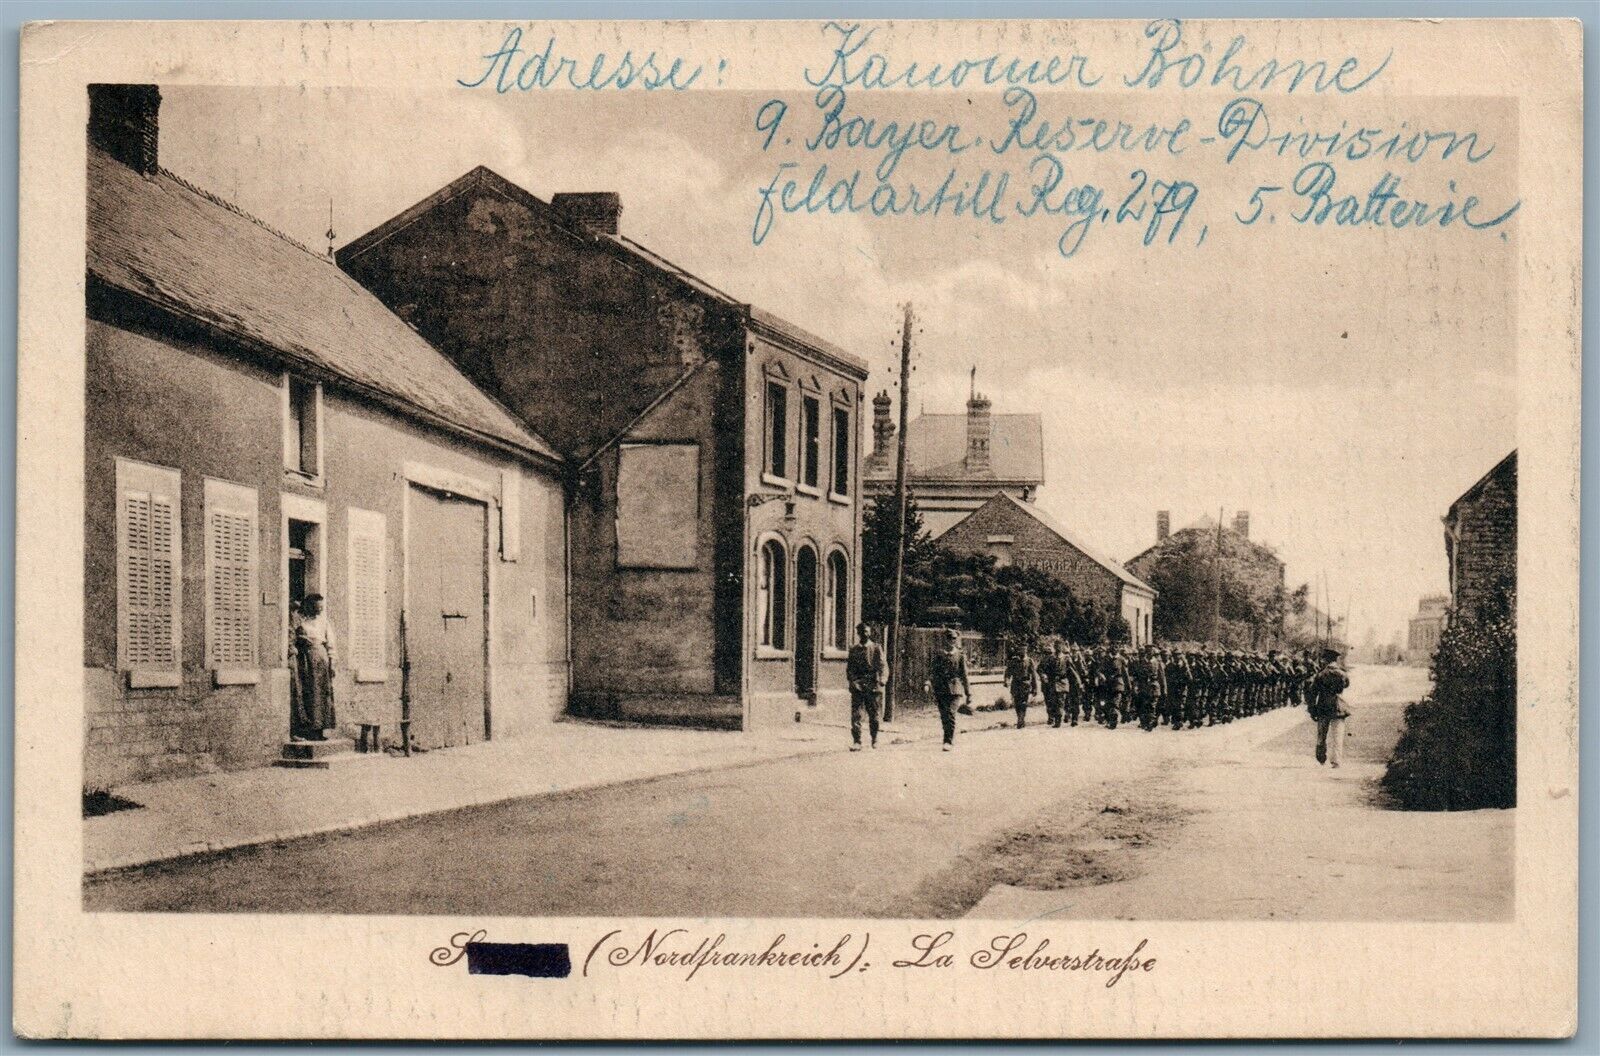 Adresse: Kanonier Böhme
9. Bayer. Reserve-Division
Feldartill Reg. 279, 5. Batterie.
S (Nordfrankreich): La Selverstraße